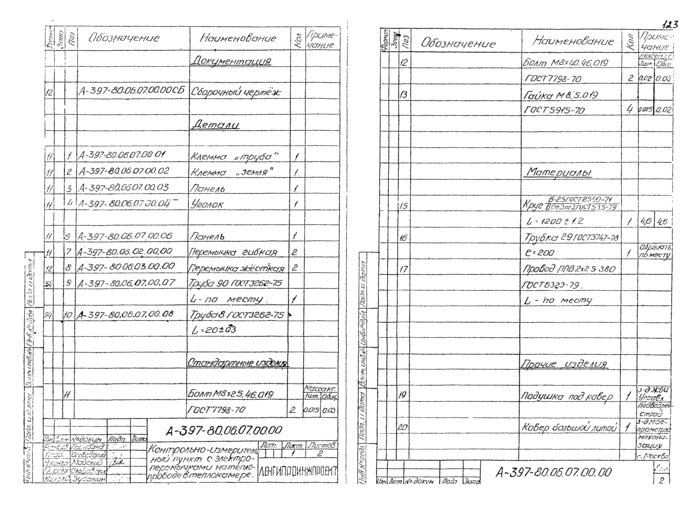 123
Поз Обозначение Наименование Кол Приме-
чание
Документация
12 А-397-80.06.07.00.00СБ Сборочный чертёж
Детали
11 1 А-397-80.06.07.00 01 Клемма „труба" 1
11 2 А-397-80.06.07.00.02 Клемма „земля" 1
11 3 А-397-80.06.07.00.03 Панель 1
11 4 А-397-80.06.07.00.04 Уголок 1
11 6 А-397-80.06.07.00.06 Панель 1
11 7 А-397-80.06.02.00.00 Перемычка гибкая 2
12 8 А-397-80.06.03.00.00 Перемычка жёсткая 2
9 А-397-80.06.07.00.07 Труба 90 ГОСТ3262-75
L-по месту 1
10 А-397-80.06.07.00.08 Труба8 ГОСТ3262-75
L=20±0,3
Стандартные изделия
11 Болт М8×25.46.019 Масса кг
Шт. Общ.
ГОСТ7798-70 2 0.015 0.03
А-397-80.06.07.00.00
Контрольно-измеритель
ный пункт с электро-
перемычками на тепло-
проводе в теплокамере.
Лит. Лист Листов
1 2
ЛЕНГИПРОИНЖПРОЕКТ
Поз Обозначение Наименование Кол Приме-
чание
12 Болт М8×40.46.019
ГОСТ7798-70 2 0.02 0.04
13 Гайка М8.5.019
ГОСТ5915-70 4 0.005 0.02
Материалы
15 Круг В-25ГОСТ2590-71
ВСт3пс3ГОСТ535-79
L=1200±12 1 4,6 4,6
16 Трубка 29ГОСТ3747-78
ℓ=200 1 Обрезать
по месту
17 Провод ППВ2×2.5 380
ГОСТ6323-79.
L-по месту
Прочие изделия
19 Подушка под ковер 1
20 Ковер большой литой 1
г. Москва
А-397-80.06.07.00.00
Лист
2